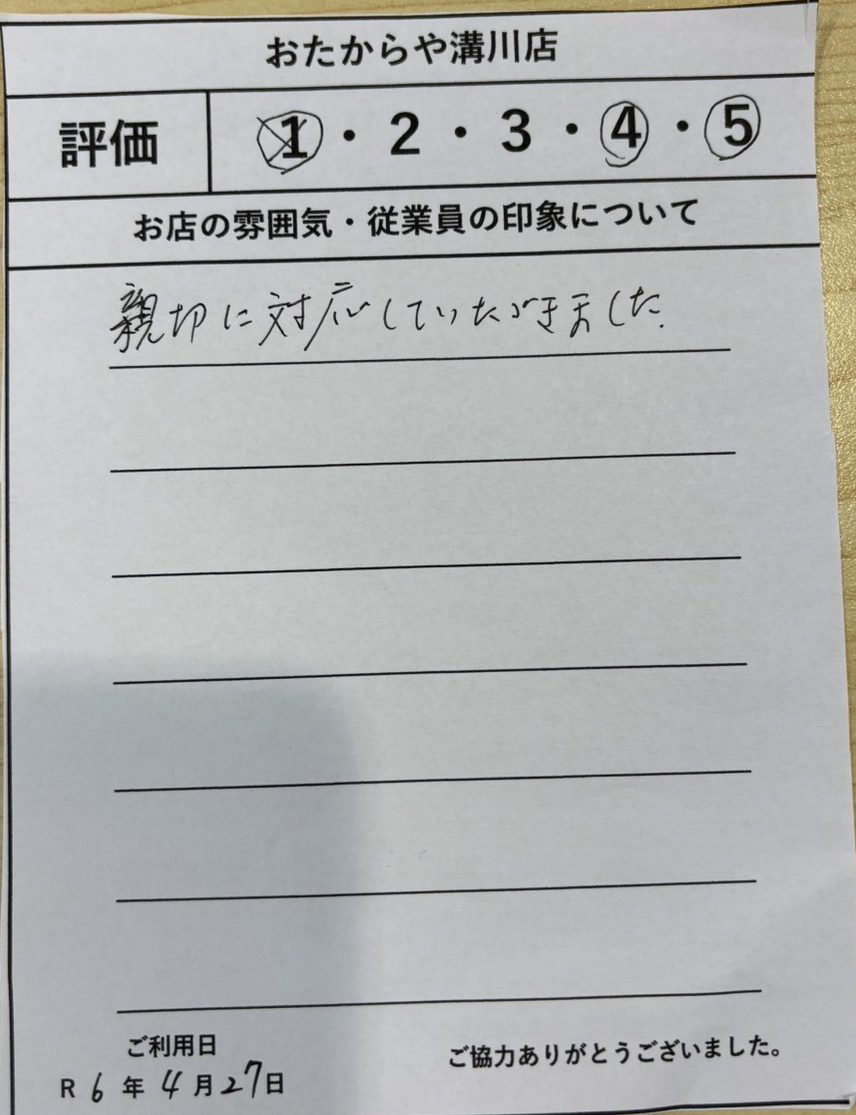 おたからや溝川店
評価 1・2・3・4・5
お店の雰囲気・従業員の印象について
親切に対応していただきました.
ご利用日
R 6 年 4 月 27 日
ご協力ありがとうございました。